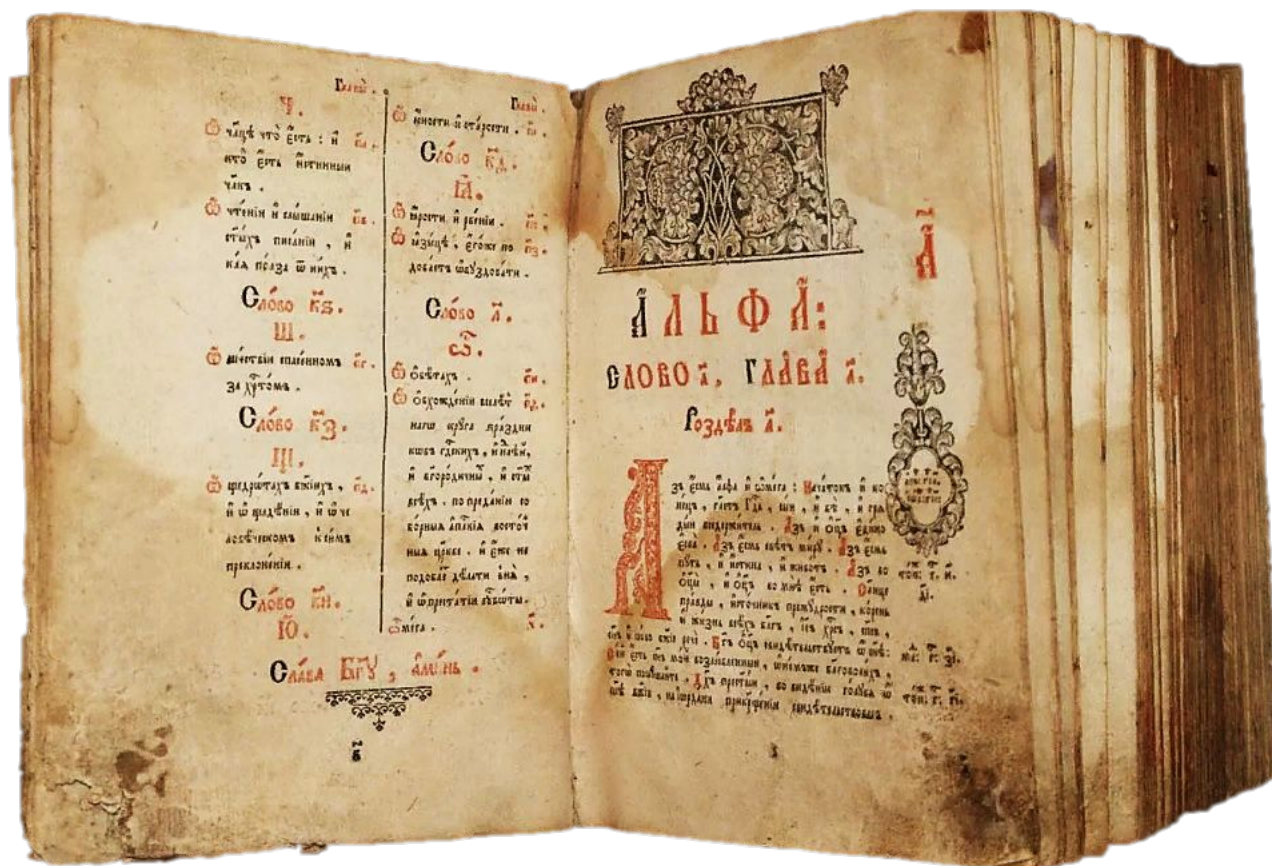 Главы .
Ч .
Ѿ чл҃цѣ что є҆сть : и҆
кто є҆сть и҆стинный
чл҃къ .
Ѿ чтенїи и҆ слышанїи
ст҃ыхъ писанїи , и҆
каѧ полза ѿ нихъ .
Сло́во к҃ѕ .
Ш .
Ѿ шествїи спасенномъ
за хр҃томъ .
Сло́во к҃з .
Щ .
Ѿ щедротахъ бж҃їихъ ,
преклоненїи .
Сло́во к҃и .
Ю .
Главы .
Ѿ ю҆ности и҆ старости .
Сло́во
Ѿ ꙗ҆рости и҆ рвенїи .
Ѿ ꙗ҆зыцѣ , є҆гоже по
добаетъ ѡ҆буздовати .
Сло́во л҃ .
Ѿ .
Ѿ ѻ҆бѣтахъ .
Ѿ ѻ҆бхожденїи
круга праздни
и҆ бг҃ородичны , и҆ ст҃ы
всѣхъ . по преданїи со
борныѧ а҆п҃лкїѧ восточ
ныѧ цр҃кве . и҆ є҆же не
подобае дѣлати
ѡ҆мега .
Сла́ва Бг҃У , а҆ми́нь .
А҃
А҆ЛЬФА :
СЛОВО а҃ , ГЛАВА а҃ .
Роздѣлъ а҃ .
Азъ є҆смь алфа и҆ ѡ҆мега : Начатокъ и҆ ко
нецъ , гл҃етъ Гд҃ь , сый , и҆ бѣ , и҆ грѧ
дый вседержитель . Азъ и҆ Ѻц҃ъ є҆дино
є҆сва . Азъ є҆смь свѣтъ миру . Азъ є҆смь
путь , и҆ истина , и҆ животъ . Азъ во
Ѻц҃ы , и҆ Ѻц҃ъ во мнѣ є҆сть . Солнце
правды , и҆сточникъ премудрости , корень
и҆ жизнь всѣхъ бл҃гъ , і҆и҃съ хр҃тосъ ,
сн҃ъ и҆ слово бж҃їе рече . Бг҃ъ Ѻц҃ъ свидѣтельствуетъ ѡ҆ мнѣ :
Сей є҆сть сн҃ъ мой возлюбленный , ѡ҆ немже бл҃говолихъ ,
того послушайте . Дх҃ъ прест҃ый , во видѣнїи голубѧ
на і҆ѻрдани при крещенїи свидѣтельствовалъ .